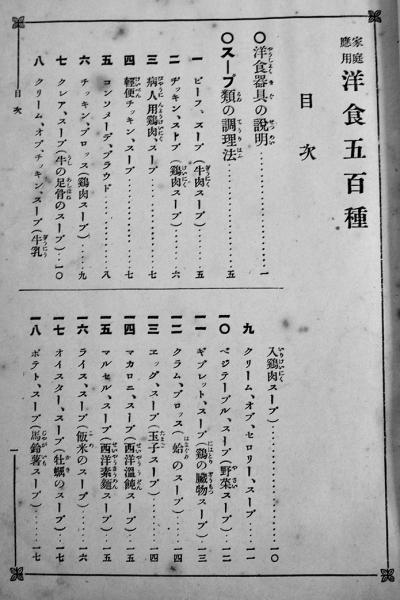 家庭應用 洋食五百種
目次
○洋食器具の説明…………一
○スープ類の調理法…………五
一 ビーフ、スープ(牛肉スープ)……五
二 チッキン、スープ(鶏肉スープ)……六
三 病人用鶏肉、スープ……七
四 輕便チッキン、スープ……七
五 コンソメーデ、ブラウド……八
六 チッキン、ブロッス(鶏肉スープ)……九
七 クレア、スープ(牛の足骨のスープ)……一〇
八 クリーム、オブ、チッキン、スープ(牛乳
入鶏肉スープ)……一〇
九 クリーム、オブ、セロリー、スープ……一一
一〇 ベジテーブル、スープ(野菜スープ)……一二
一一 ギブレット、スープ(鶏の臓物スープ)……一三
一二 クラム、ブロッス(蛤のスープ)……一四
一三 エッグ、スープ(玉子スープ)……一四
一四 マカロニ、スープ(西洋溫飩スープ)……一五
一五 マルセル、スープ(西洋素麺スープ)……一五
一六 ライス、スープ(飯米のスープ)……一六
一七 オイスター、スープ(牡蠣のスープ)……一七
一八 ポテト、スープ(馬鈴薯スープ)……一七
目次
一